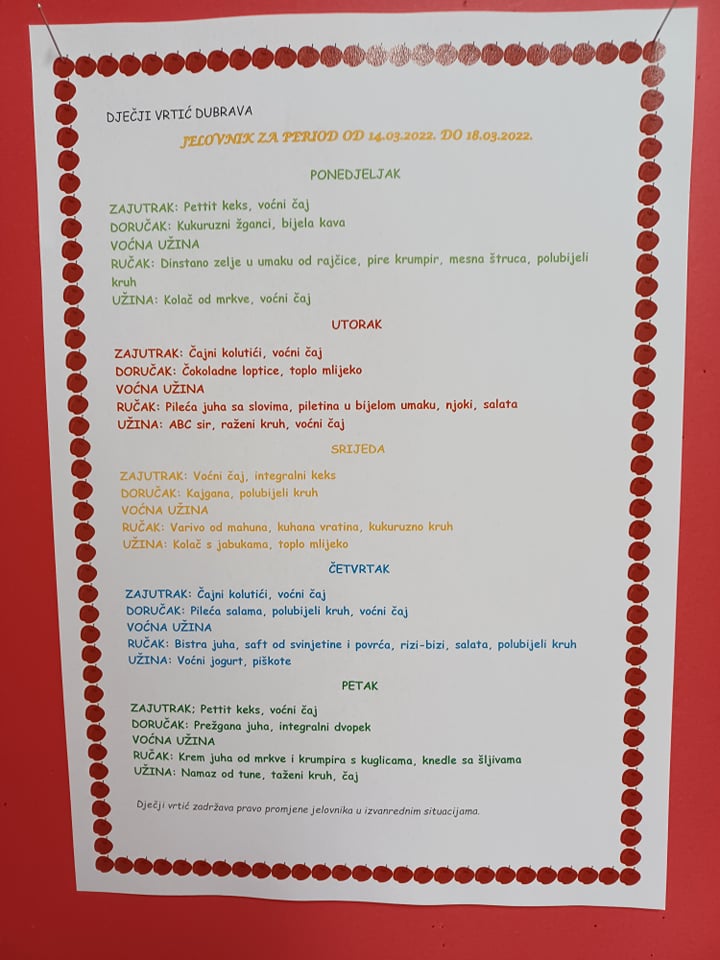 DJEČJI VRTIĆ DUBRAVA
JELOVNIK ZA PERIOD OD 14.03.2022. DO 18.03.2022.
PONEDJELJAK
ZAJUTRAK: Pettit keks, voćni čaj
DORUČAK: Kukuruzni žganci, bijela kava
VOĆNA UŽINA
RUČAK: Dinstano zelje u umaku od rajčice, pire krumpir, mesna štruca, polubijeli
kruh
UŽINA: Kolač od mrkve, voćni čaj
UTORAK
ZAJUTRAK: Čajni kolutići, voćni čaj
DORUČAK: Čokoladne loptice, toplo mlijeko
VOĆNA UŽINA
RUČAK: Pileća juha sa slovima, piletina u bijelom umaku, njoki, salata
UŽINA: ABC sir, raženi kruh, voćni čaj
SRIJEDA
ZAJUTRAK: Voćni čaj, integralni keks
DORUČAK: Kajgana, polubijeli kruh
VOĆNA UŽINA
RUČAK: Varivo od mahuna, kuhana vratina, kukuruzno kruh
UŽINA: Kolač s jabukama, toplo mlijeko
ČETVRTAK
ZAJUTRAK: Čajni kolutići, voćni čaj
DORUČAK: Pileća salama, polubijeli kruh, voćni čaj
VOĆNA UŽINA
RUČAK: Bistra juha, saft od svinjetine i povrća, rizi-bizi, salata, polubijeli kruh
UŽINA: Voćni jogurt, piškote
PETAK
ZAJUTRAK; Pettit keks, voćni čaj
DORUČAK: Prežgana juha, integralni dvopek
VOĆNA UŽINA
RUČAK: Krem juha od mrkve i krumpira s kuglicama, knedle sa šljivama
UŽINA: Namaz od tune, taženi kruh, čaj
Dječji vrtić zadržava pravo promjene jelovnika u izvanrednim situacijama.